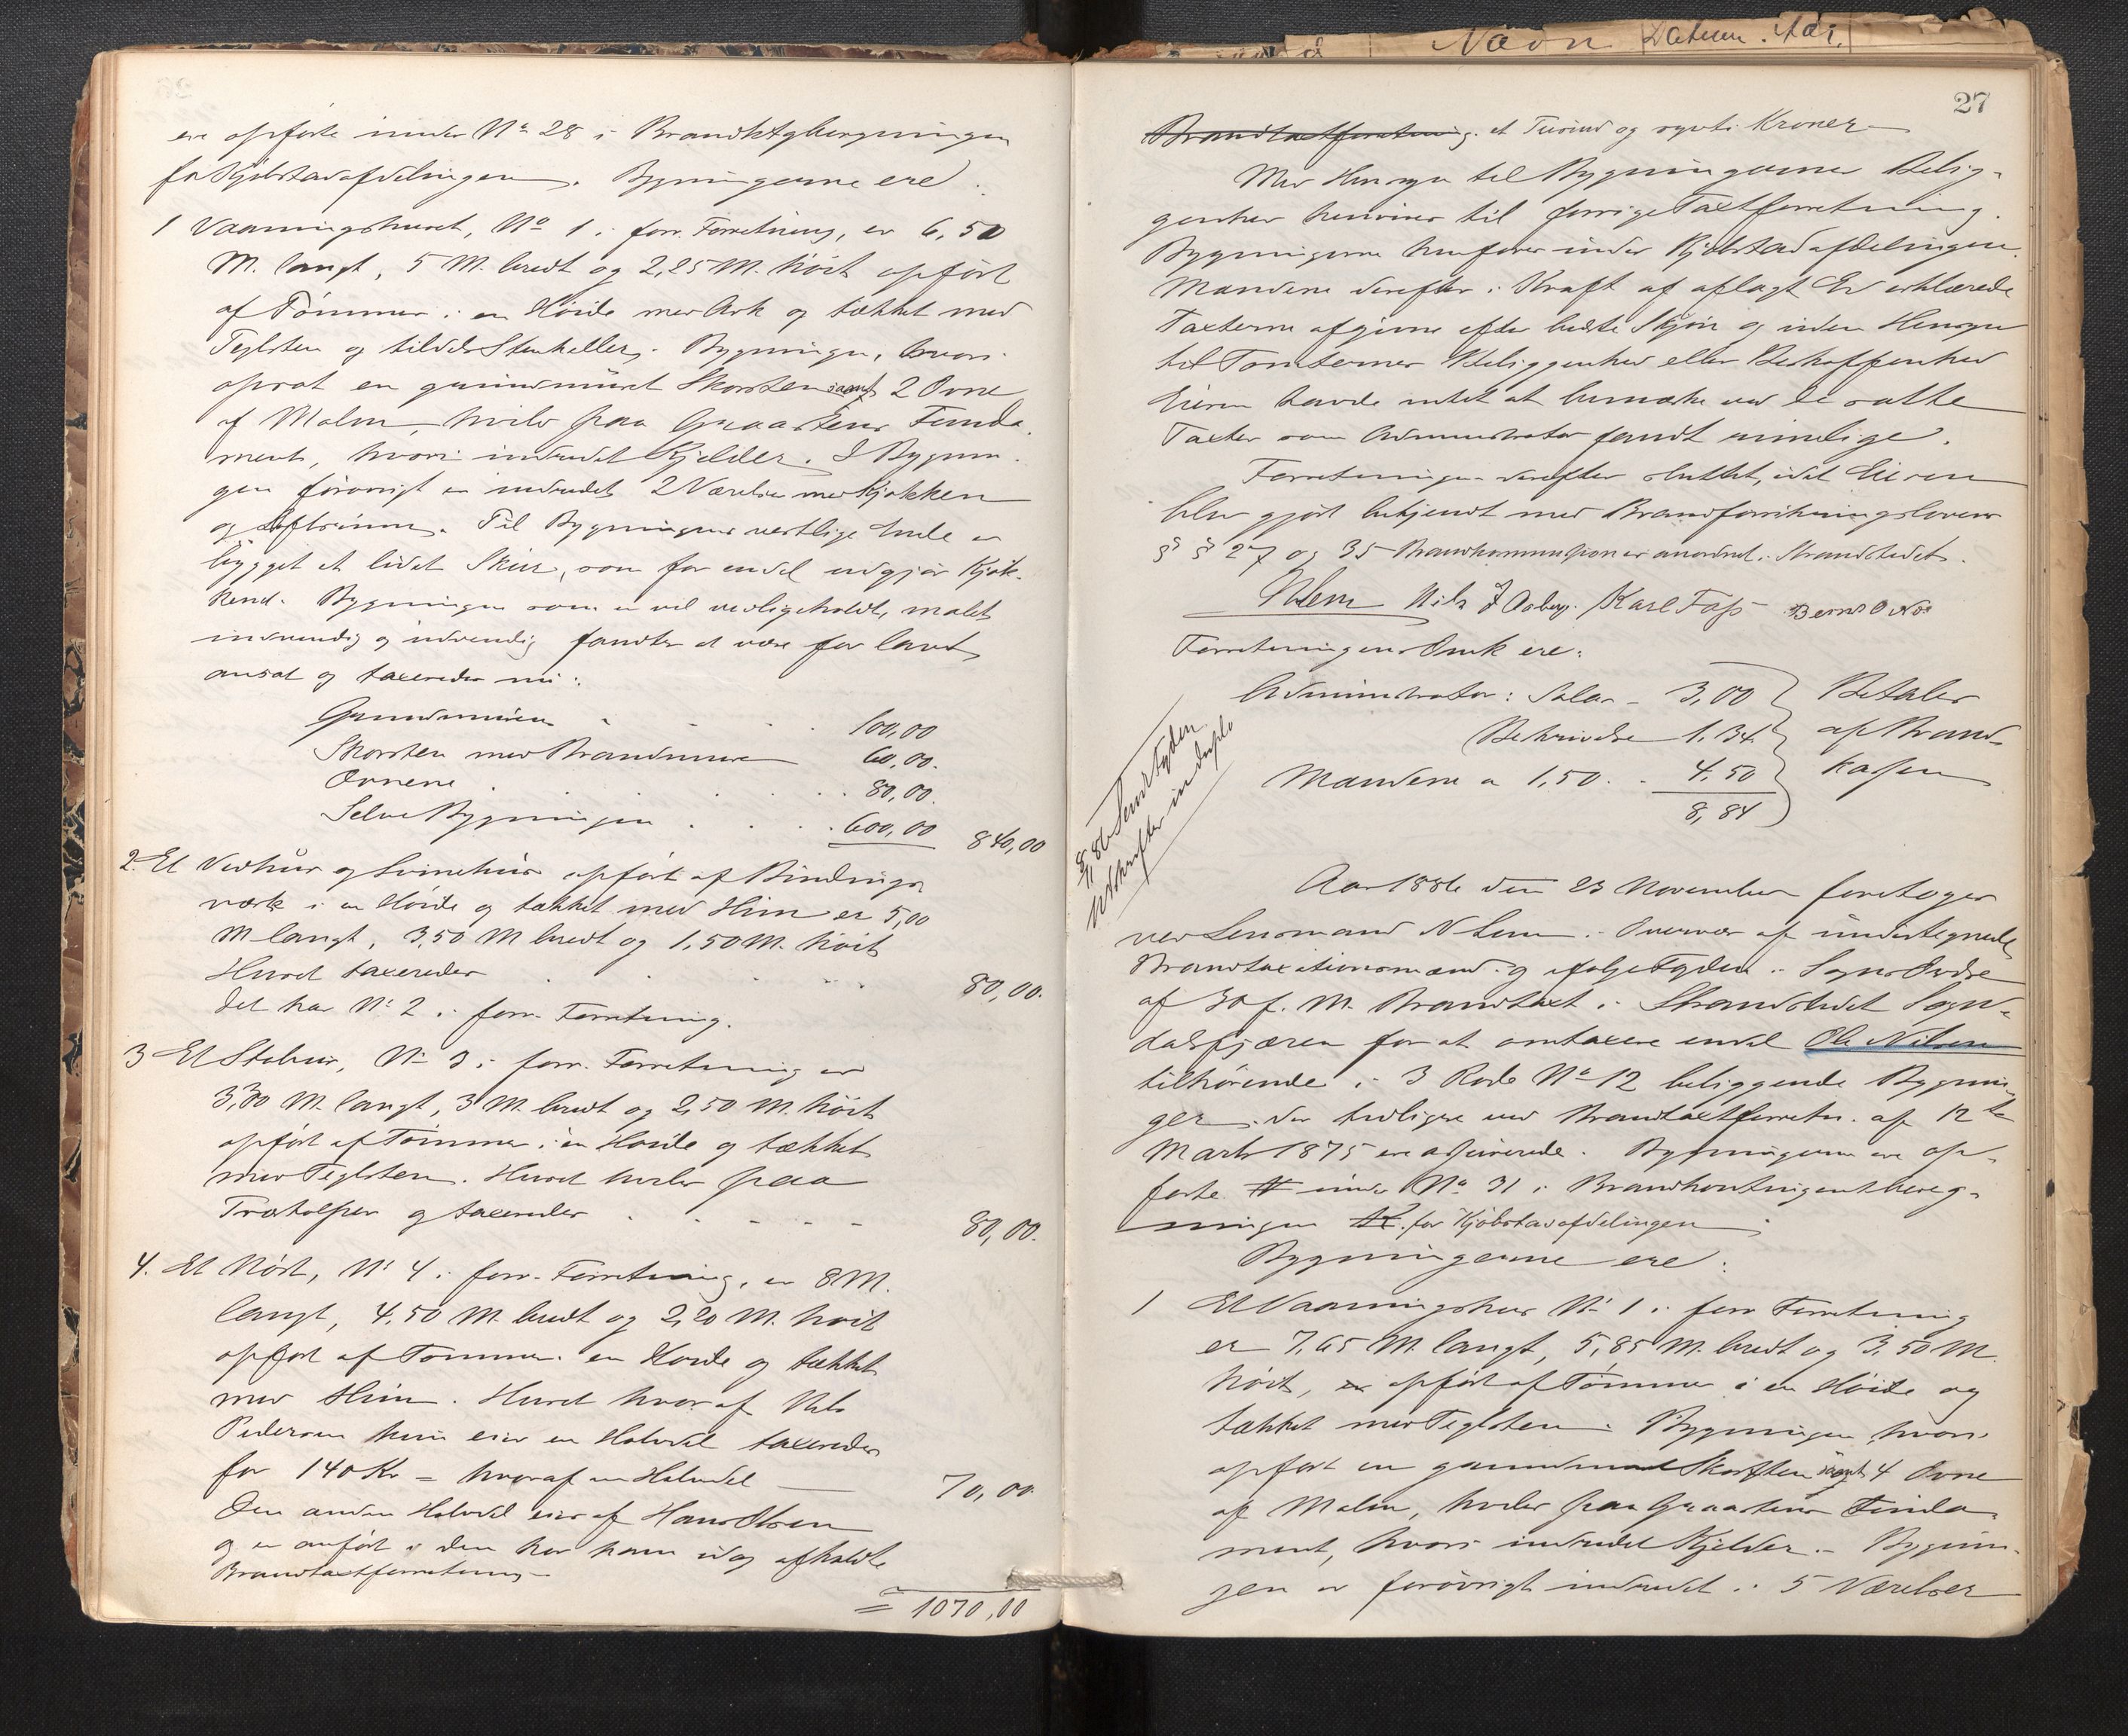 ere opførte under No 28 i Brandktgberegningen
for Kjøbstadafdelingen. Bygningerne ere:
1 Vaaningshuset, No 1 i forr. Forretning, er 6,50
M. langt, 5 M. bredt og 2,25 M. høit opført
af Tømmer i en Høide med Ark og tækket med
Teglsten og tildels Stenheller. Bygningen, hvori
opsat en grundmuret Skorsten samt 2 Ovne
af Malm, hviler paa Graastens Funda-
ment, hvori indredet Kjelder. I Bygnin-
gen forøvrigt er indredet 2 Værelser med Kjøkken
og Loftsrum. Til Bygningens vestlige Ende er
bygget et lidet Skur, som for endel udgjør Kjøk-
kenet. Bygningen som er vel vedligeholdt, malet
indvendig og udvendig fandtes at være for lavt
ansat og taxeredes nu:
Grundmuren . . . 100,00
Skorsten med Brandmure 60,00.
Ovnene . . . . 80,00.
Selve Bygningen . . . 600,00 840,00
2. Et Vedhus og Svinehus opført af Bindings
værk i en Høide og tækket med Him er 5,00
M langt, 3,50 M bredt og 1,50 M. høit
Huset taxeredes . . . 80,00.
det har No 2 i forr. Forretning.
3 Et Stabur, No 3 i forr. Forretning er
3,30 M. langt, 3 M. bredt og 2,50 M. høit
opført af Tømmer i en Høide og tækket
med Teglsten. Huset hviler paa
Træstolper og taxeredes . . . 80,00.
4. Et Nøst, No 4 i forr. Forretning, er 8 M.
langt, 4,50 M. bredt og 2,20 M. høit
opført af Tømmer i en Høide og tækket
med Him. Huset hvoraf Nils
Pedersen kun eier en Halvdel taxeredes
for 140 Kr = hvoraf en Halvdel 70,00
Den anden Halvdel eies af Hans Olsen
og er anført i den hos ham idag afholdte
Brandtaxtforretning
= 1070,00
27
Brandtaxtforretning. et Tusind og sytti Kroner
Med Hensyn til Bygningernes Belig-
genhed henvises til forrige Taxtforretning.
Bygningerne henføres under Kjøbstadafdelingen.
Mændene derefter i Kraft af aflagt Ed erklærede
Taxterne afgivne efter bedste Skjøn og uden Hensyn
til Tomternes Beliggenhed eller Beskaffenhed
Eieren havde intet at bemærke ved de satte
Taxter som Administrator fandt rimelige.
Forretningen derefter sluttet, idet Eieren
blev gjort bekjendt med Brandforsikringslovens
§ § 27 og 35 Brandkommission er anordnet i Strandstedet.
NLem Nils J Aaberg. Karl Foss Bernt O
Forretningens Omk ere:
Administrator: Salar - 3,00 Betales
Beskrivelse 1,34 af Brand-
Mændene a 1,50. . 4,50 kassen
8,84
8/1 86 Sendt Fogden
Udskrifter in duplo
Aar 1886 den 23 November foretoges
ved Lensmand N Lem i Overvær af undertegnede
Brandtaxationsmænd og ifølge Fogden i Sogns Ordre
af 30 f. M. Brandtaxt i Strandstedet Sogn-
dalsfjæren for at omtaxere endel Ole Nilsen
tilhørende i 3 Rode No 12 beliggende Bygnin-
ger, der tidligere ved Brandtaxtforretn. af 12te
Marts 1875 ere assurerede. Bygningerne ere op-
førte under No 31 i Brandkontingentbereg-
ningen for Kjøbstadafdelingen.
Bygningerne ere:
1 Et Vaaningshus No 1 i forr Forretning
er 7,65 M. langt, 5,85 M. bredt og 3,50 M.
høit, er opført af Tømmer i en Høide og
tækket med Teglsten. Bygningen, hvori
opført en grundmuret Skorsten samt 4 Ovne
af Malm, hviler paa Graastens Funda-
ment, hvori indredet Kjelder. Bygnin-
gen er forøvrigt indredet i 5 Værelser
Navn Datum. Aar.